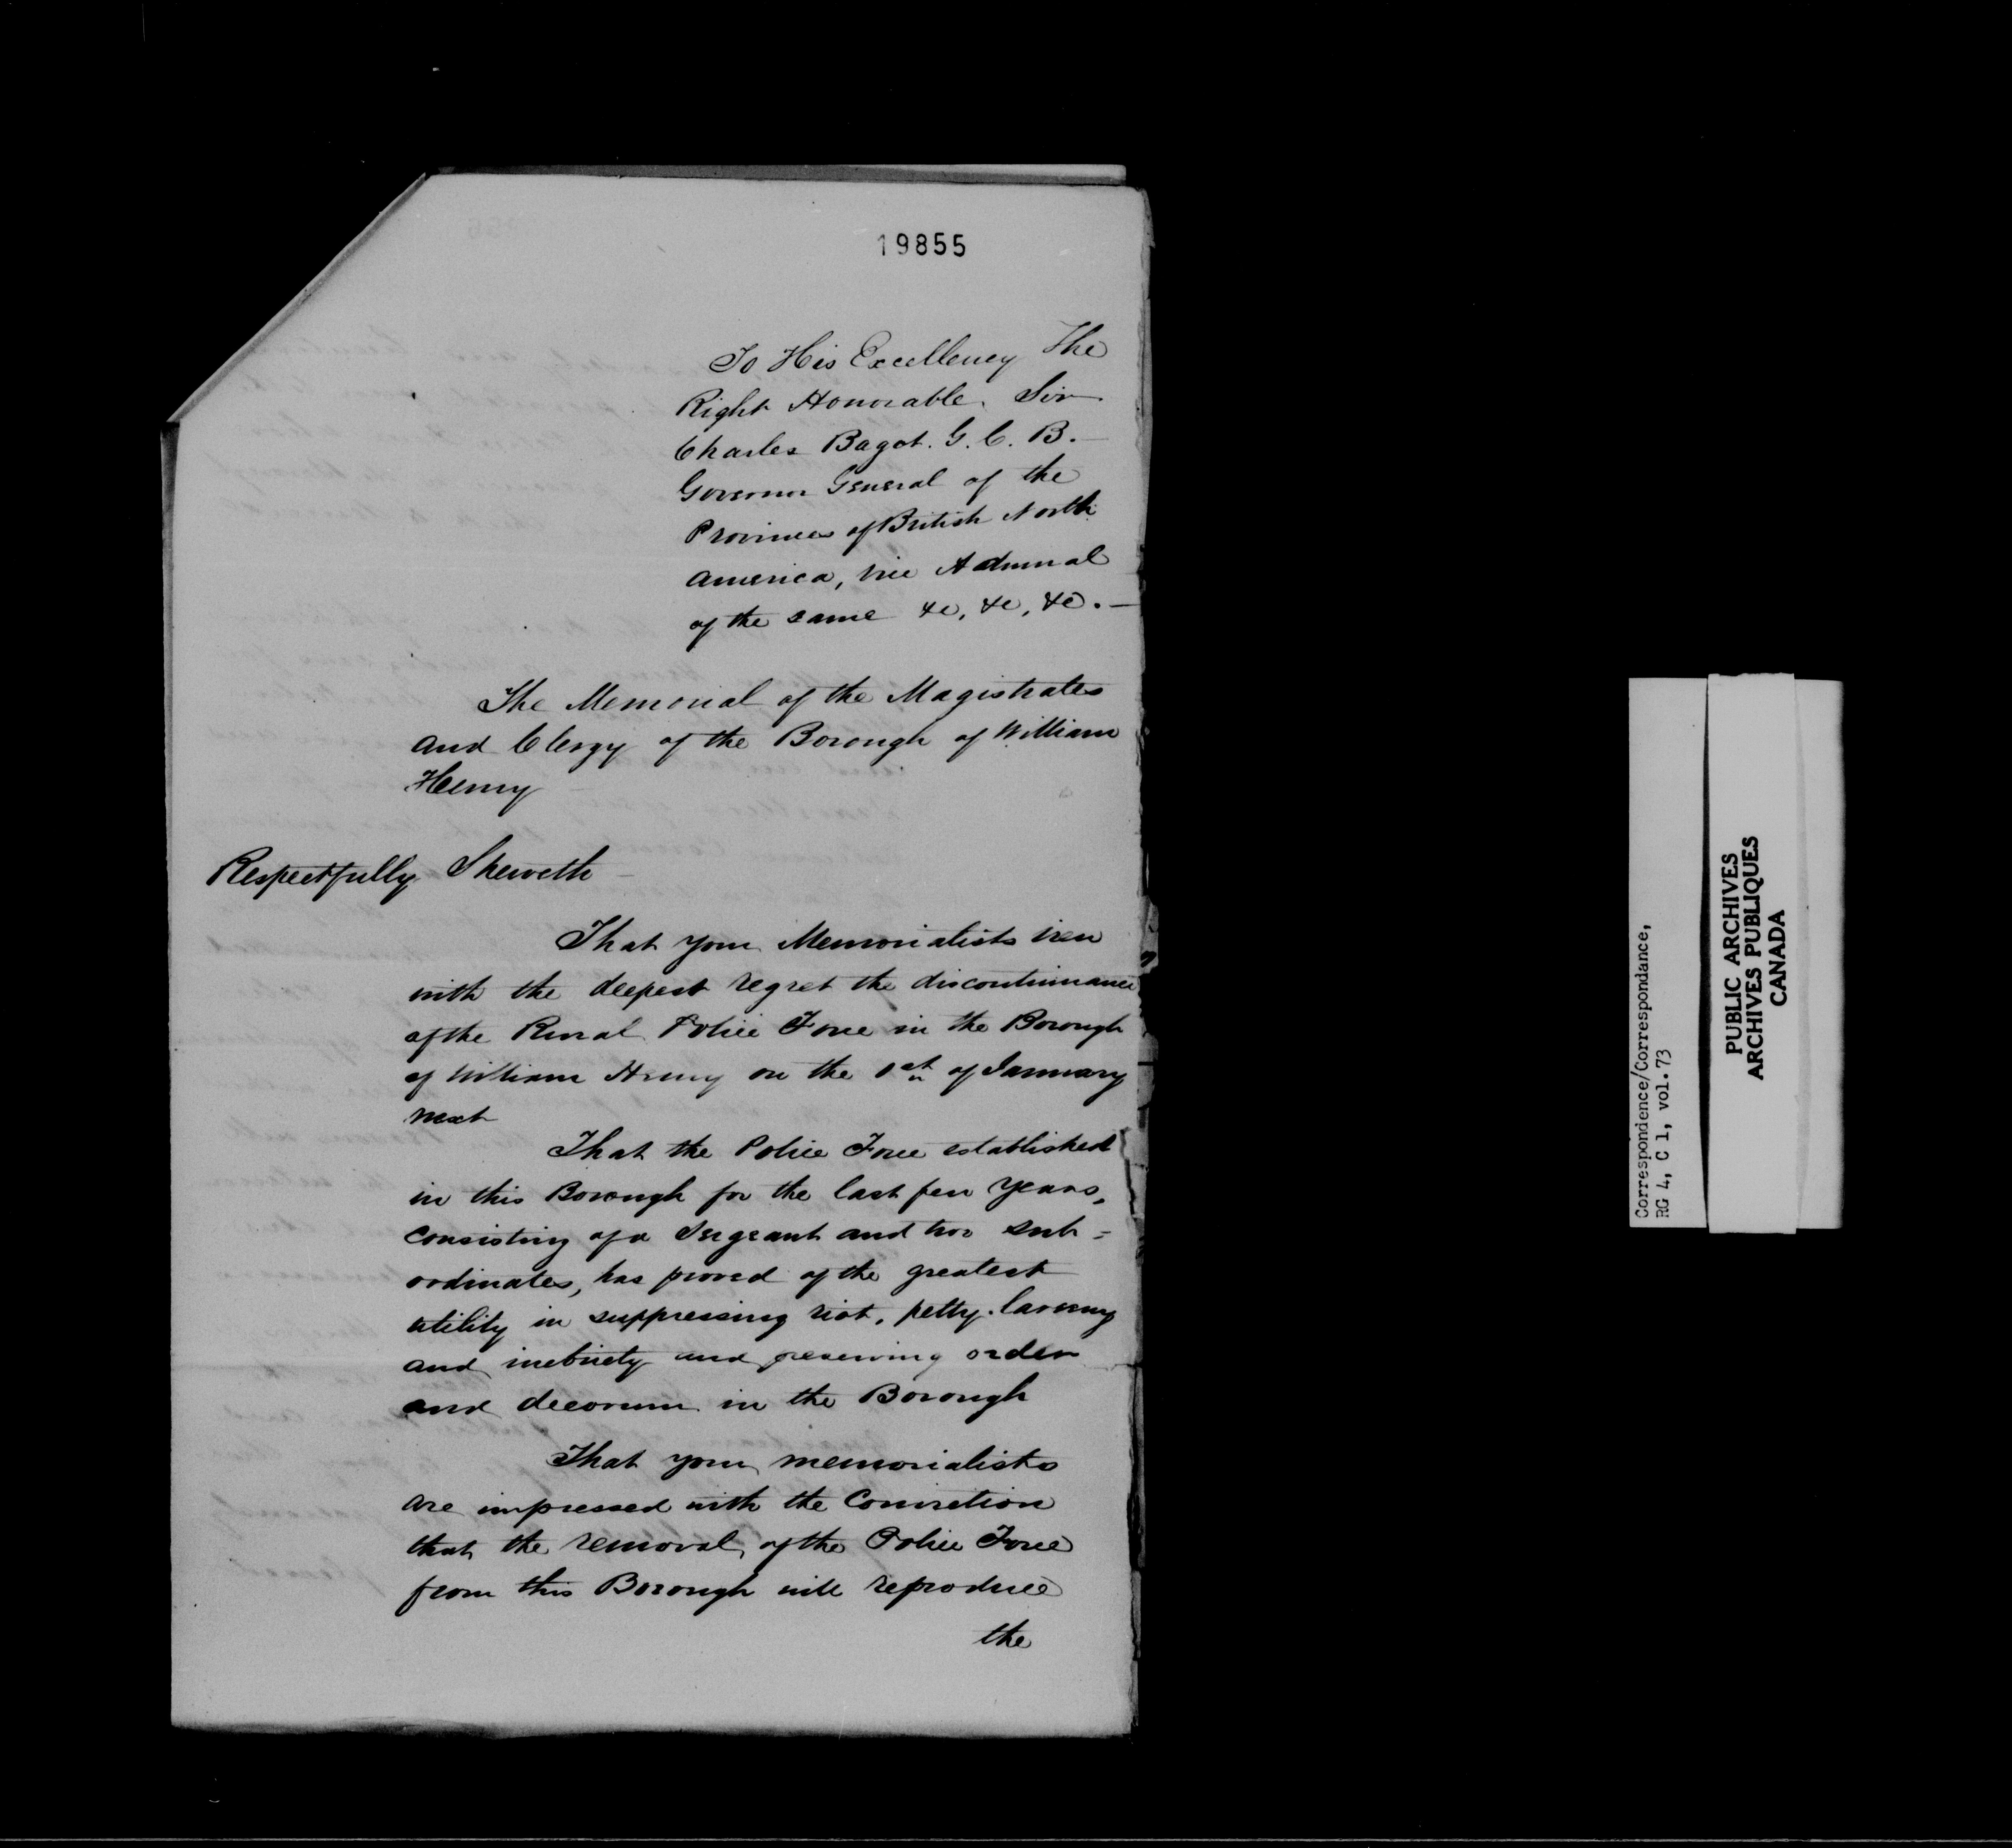 19855
To His Excellency The
Right Honorable. Sir
Charles Bagot. G. C. B. —
Governor General of the
Provinces of British North
America, vice Admiral
of the same &c, &c, &c. —
The Memorial of the Magistrates
and Clergy of the Borough of William
Henry
Respectfully Sheweth —
That your Memorialists view
with the deepest regret the discontinuance
of the Rural Police Force in the Borough
of William Henry on the 1st of January
next
That the Police Force established
in this Borough for the last few years,
consisting of a Sergeant and two sub =
ordinates, has proved of the greatest
utility in suppressing riot, petty larceny
and inebriety and preserving order
and decorum in the Borough
That your memorialists
are impressed with the Conviction
that the removal of the Police Force
from this Borough will reproduce
the
Correspondence/Correspondance,
RG 4, C 1, vol.73
PUBLIC ARCHIVES
ARCHIVES PUBLIQUES
CANADA